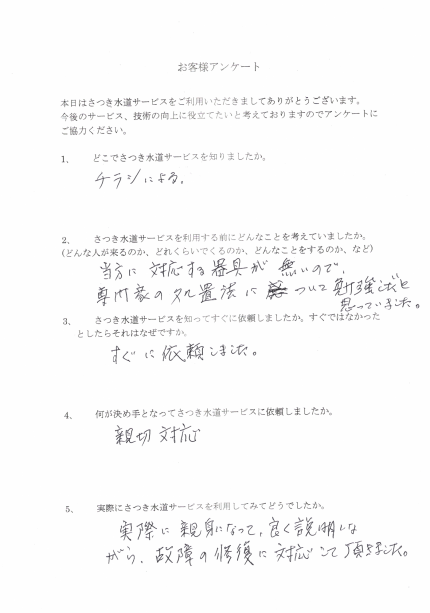 お客様アンケート
本日はさつき水道サービスをご利用いただきましてありがとうございます。
今後のサービス、技術の向上に役立てたいと考えておりますのでアンケートに
ご協力ください。
1、 どこでさつき水道サービスを知りましたか。
チラシによる。
2、 さつき水道サービスを利用する前にどんなことを考えていましたか。
(どんな人が来るのか、どれくらいでくるのか、どんなことをするのか、など)
当方に対応する器具が無いので、
専門家の処置法に ついて勉強だと
思っていました。
3、 さつき水道サービスを知ってすぐに依頼しましたか。すぐではなかった
としたらそれはなぜですか。
すぐに依頼しました。
4、 何が決め手となってさつき水道サービスに依頼しましたか。
親切対応
5、 実際にさつき水道サービスを利用してみてどうでしたか。
実際に親身になって、良く説明しな
がら、故障の修復に対応して頂きました。